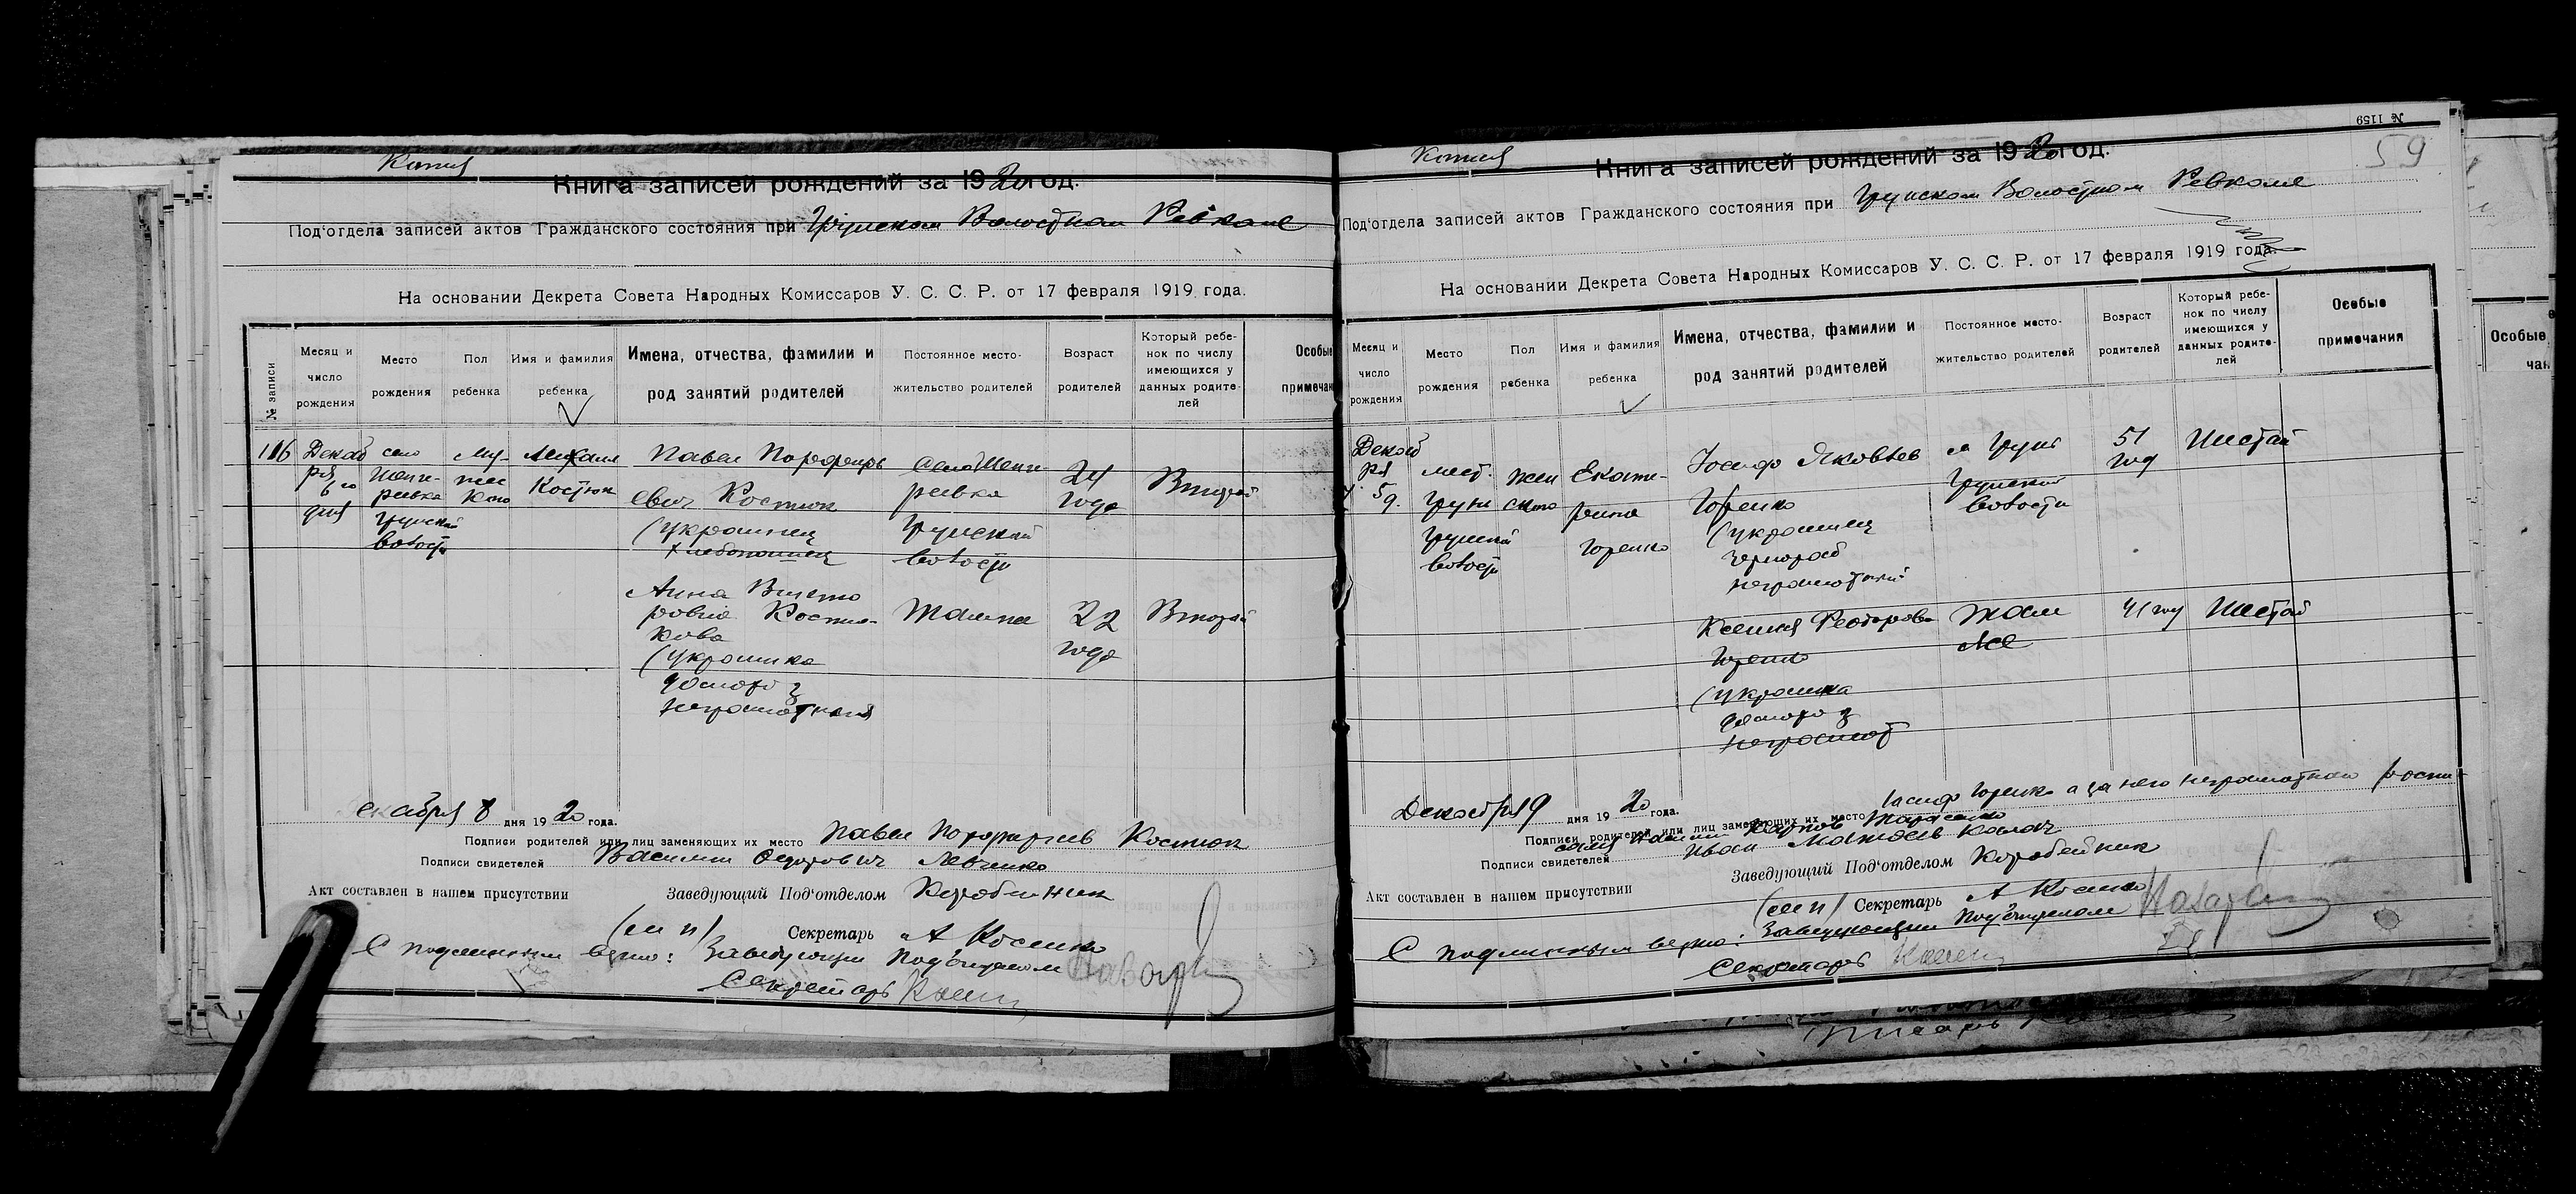 Копия
Книга записей рождений за 1920 год.
Под‘отдела записей актов Гражданского состояния при Грунском Волостном Ревкоме
На основании Декрета Совета Народных Комиссаров У. С. С. Р. от 17 февраля 1919 года.
№ записи
Месяц и число рождения
Место рождения
Пол ребенка
Имя и фамилия ребенка
Имена, отчества, фамилии и род занятий родителей
Постоянное место-жительство родителей
Возраст родителей
Который ребе-нок по числу имеющихся у данных родите-лей
Особые примечан
116
Декаб
ря
6 го
дня
село
ревка
Грунской
волости
Му-
жес
кого
Михаил
Костюк
Павел Порфирь
евич Костюк
(украинец
хлебопашец
село
ревка
Грунской
волости
24
года
Второй
Анна
ровна Костю-
кова
(украинка
домохоз
неграмотная
22
года
Второй
екабря 8 дня 1920 года.
Подписи родителей или лиц заменяющих их место Павел Костюк
Подписи свидетелей Василий Федорович Левченко
Акт составлен в нашем присутствии
Заведующий Под‘отделом Коробейник
(м п) Секретарь А Косенко
С подлинным верно: Заведующий Под‘отделом
Секретарь
№ 1159
59
Копия
Книга записей рождений за 1920 год.
Под‘отдела записей актов Гражданского состояния при Грунском Волостном Ревкоме
На основании Декрета Совета Народных Комиссаров У. С. С. Р. от 17 февраля 1919 года.
Месяц и число рождения
Место рождения
Пол ребенка
Имя и фамилия ребенка
Имена, отчества, фамилии и род занятий родителей
Постоянное место-жительство родителей
Возраст родителей
Который ребе-нок по числу имеющихся у данных родите-лей
Особые примечания
Особые
чан
Декаб
ря
5 д.
мест.
Грунь
Грунской
волости
Жен
ского
Екате-
рина
Горенко
Иосиф Яковлев
Горенко
(украинец
чернораб
неграмотный
м Грунь
Грунской
волости
51
год
Шестой
Ксения Феодоров
Горенко
(украинка
домохоз
неграмот
Там
же
41 год
Шестой
Декабря 9 дня 1920 года.
Подписи родителей или лиц заменяющих их место Иосиф Горенко а за него неграмотного роспи
Карпов Тарасенко
Подписи свидетелей Иван
Акт составлен в нашем присутствии
Заведующий Под‘отделом Коробейник
(м п) Секретарь А Косенко
С подлинным верно: Заведующий Под‘отделом
Секретарь